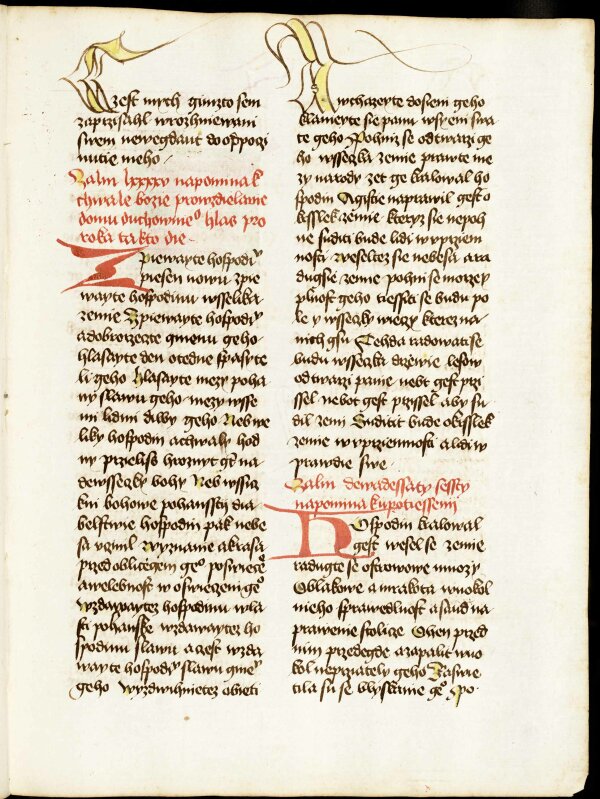 czest mych gimzto sem
zaprzisahl wrozhniewani
swem newegdaut do odpozi
nutie meho
Zalm lxxxxv napomina k
chwale bozie prowzdielanie
domu duchownieo hlas pro
roka takto die
Zpiewayte hospodiu
piesen nowu zpie
wayte hospodinu wsselika
zemie Zpiewayte hospodiu
a dobrorzezte gmenu geho
hlasayte den otedne spasyte
li geho hlasayte mezy poha
ny slawu geho mezy wsse
mi lidmi diwy geho Neb we
liky hospodin achwaly hod
ny przieliss hrozny gt na
dewsseczky bohy Neb wssiic
kni bohowe pohanssti dia
belstwie hospodin pak nebe
sa vzinil wyznanie akrasa
przed obliczegem geo poswietco
awelebnost w oswiezeni geo
wzdawaytez hospodinu wla
sti pohanske wzdawaytez ho
spodinu slawu azest wzda
wayte hospodiu slawu gmeu
geho wyzdwihnietez obieti
Awchazeyte dosieni geho
klanieyte sie panu wsyeni swa
te geho Pohniz se od twarzi ge
ho wsseczka zemie prawte me
zy narody zet ge kralowal ho
spodin Agistie naprawil gest o
kisslek zemie kteryz sie nepoh
ne suditi bude lidi w vpriem
nosti weseltez sie nebesa a ra
dugsie zemie pohni se morze y
plnost geho tiessiti se budu po
le y wsseczky wieczy kterez na
nich gsu Tehda radowati se
budu wsseczka drziewie lesow
od twarzi panie nebt gest przi
ssel nebot gest przissel aby su
dil zemi Suditit bude okisslek
zemie w vpriemnosti a lidi w
prawdie swe
Zalm dewadessaty ssesty
napomina ku potiesseni
Hospodin kralowal
gest wesel se zemie
radugte se ostrowowe mnozy
Oblakowe a mrakota wuokol
nieho sprawedlnost a saud na
prawenie stolize Ohen przed
nim przedegde a zapalit wuo
kol neprzately geho Zaswie
tila su se blyskanie geo Spo